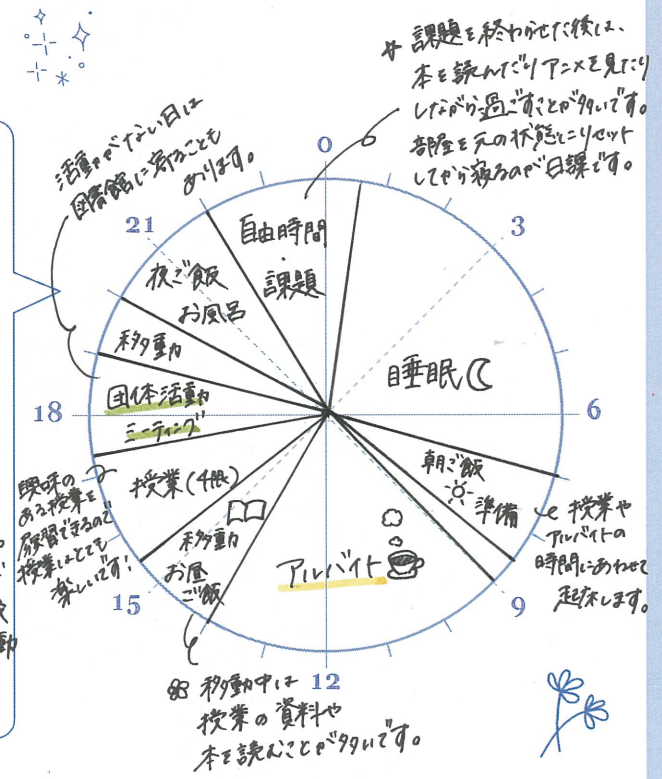 課題を終わらせた後は、
本を読んだりアニメを見たり
しながら過ごすことが多いです。
部屋を元の状態にリセット
してから寝るのが日課です。
活動がない日は
図書館に寄ることも
あります。
0
3
6
9
12
15
18
21
自由時間
・
課題
睡眠
朝ご飯
準備
授業や
アルバイトの
時間にあわせて
起床します。
アルバイト
移動
お昼
ご飯
移動中は
授業の資料や
本を読むことが多いです。
授業(4限)
興味の
ある授業を
履習できるので
授業はとても
楽しいです!
団体活動
ミーティング
移動
夜ご飯
お風呂
動